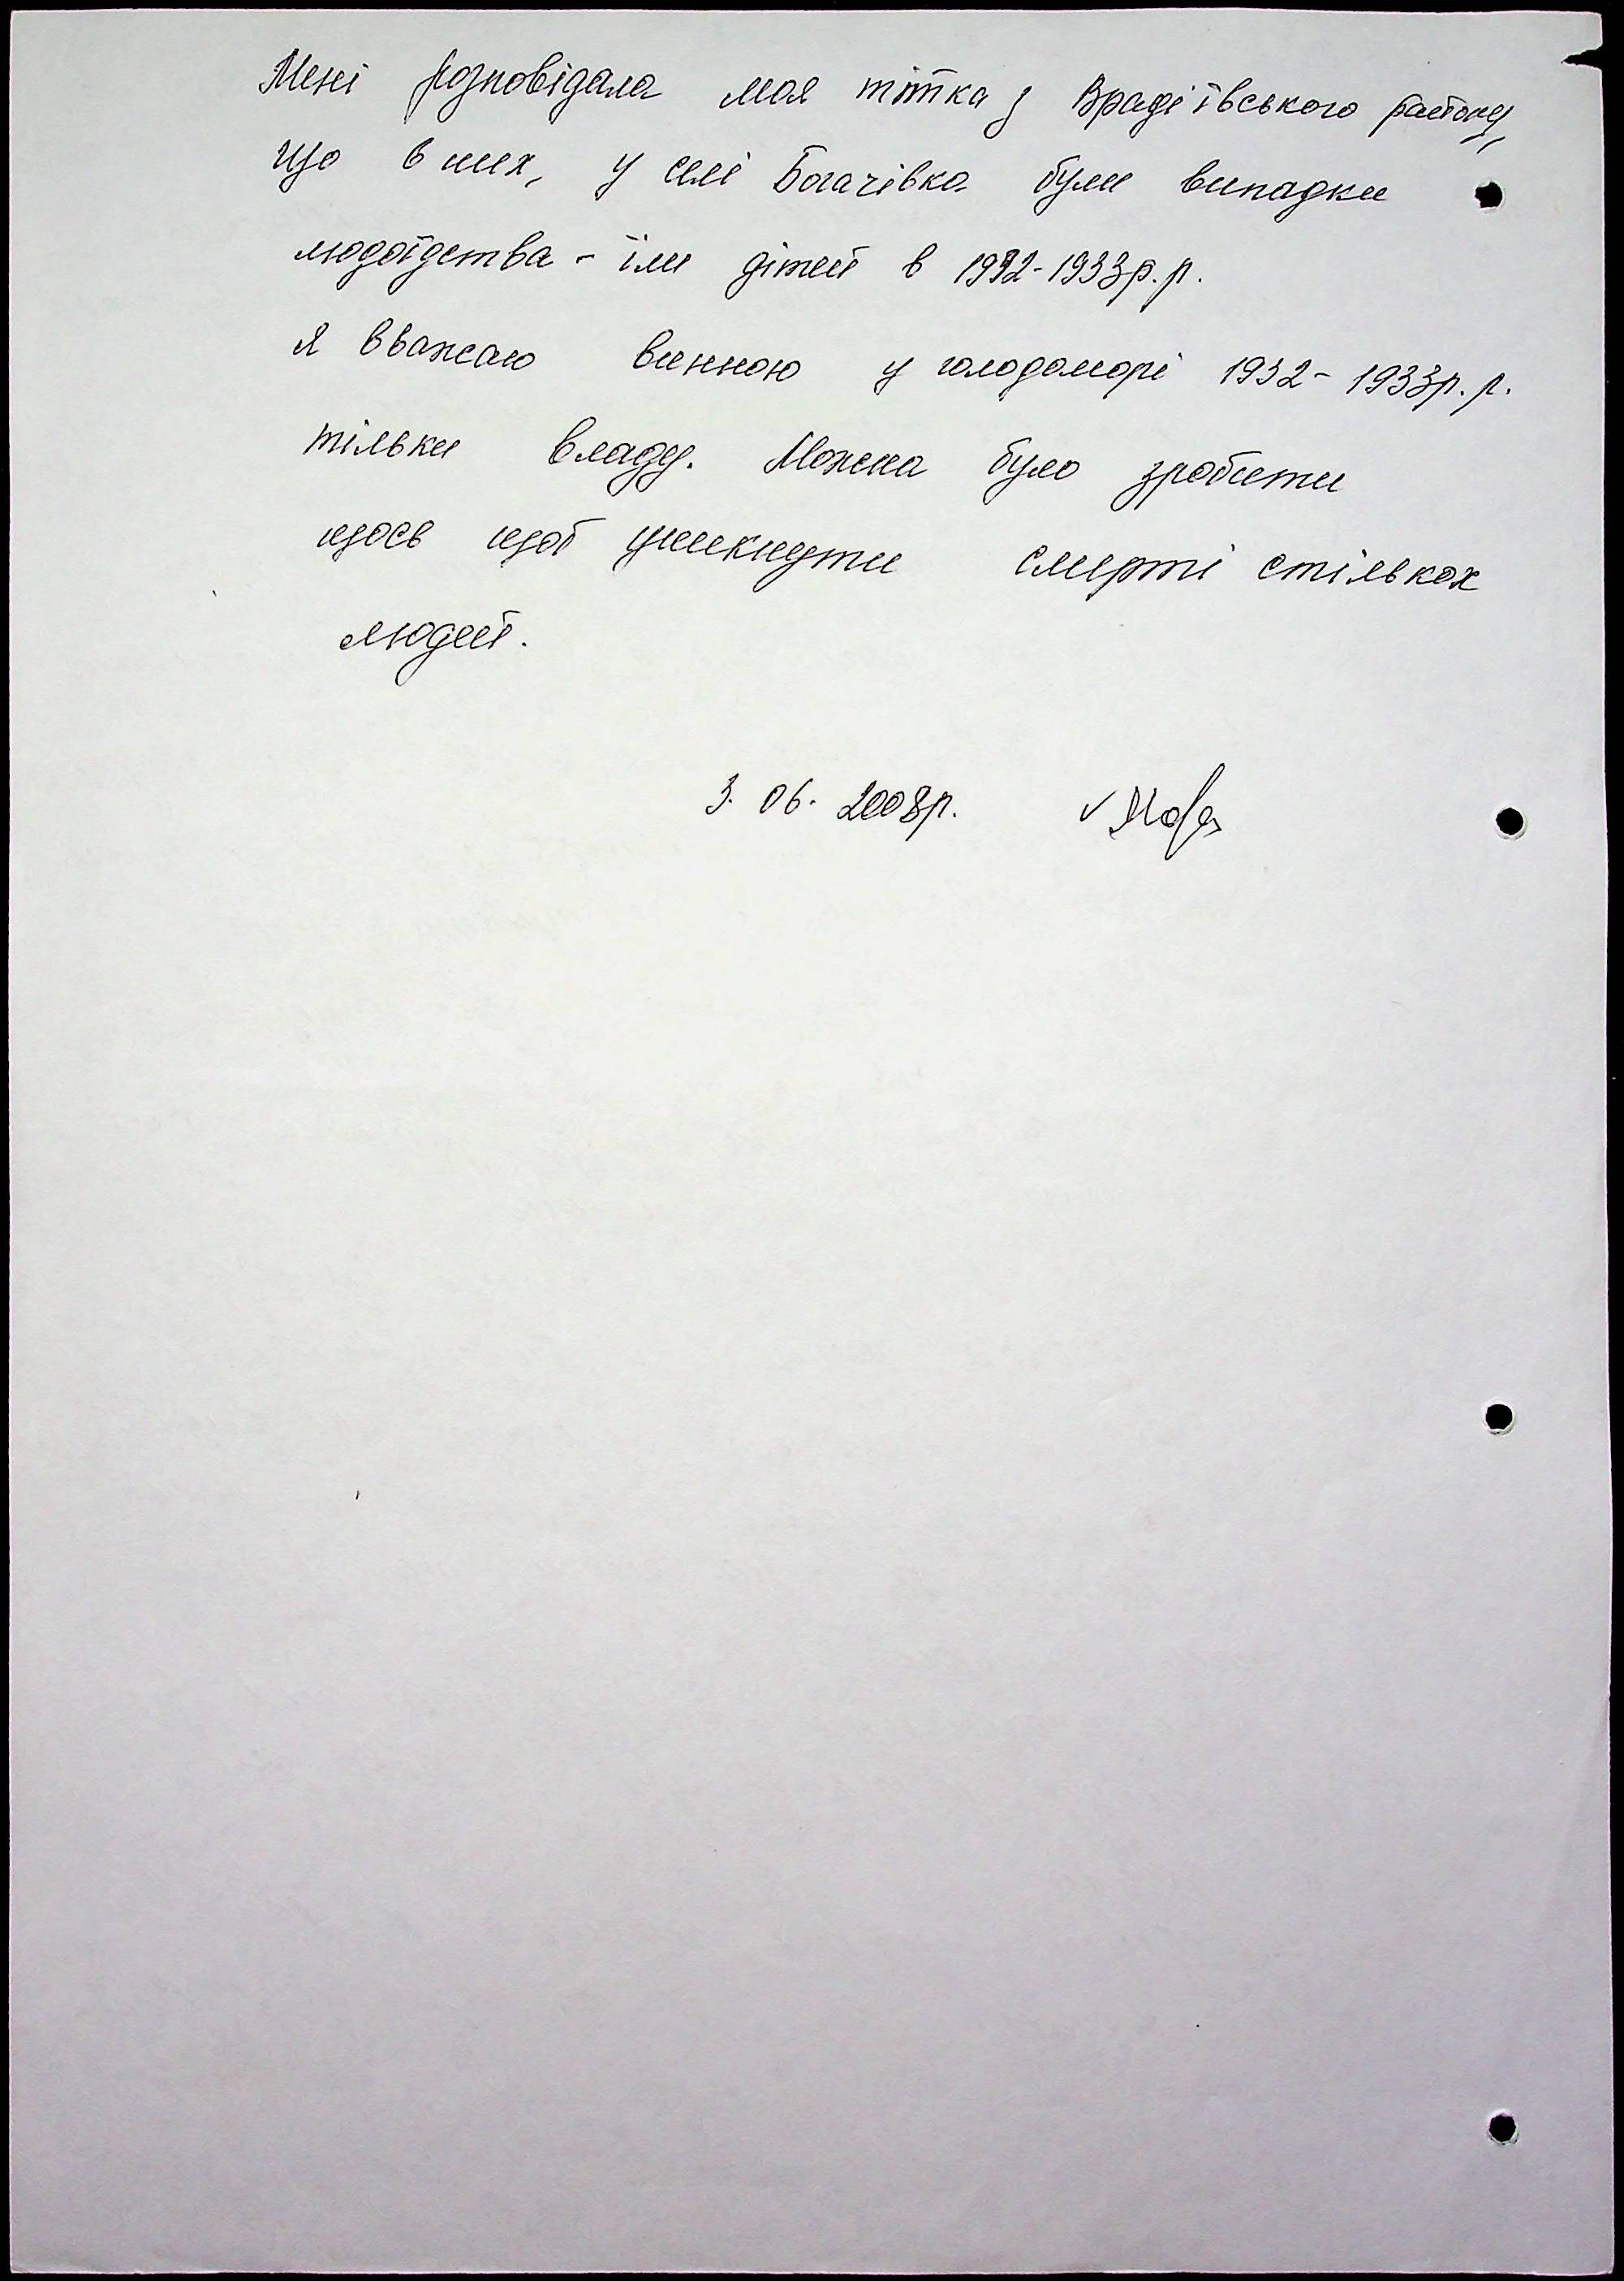 Мені розповідала моя тітка з Врадіївського району,
що в них, у селі Богачівка були випадки
людоїдства - їли дітей в 1932-1933р.р.
Я вважаю винною у голодоморі 1932-1933р.р.
тільки владу. Можна було зробити
щось щоб уникнути смерті стількох
людей.
3. 06. 2008р.